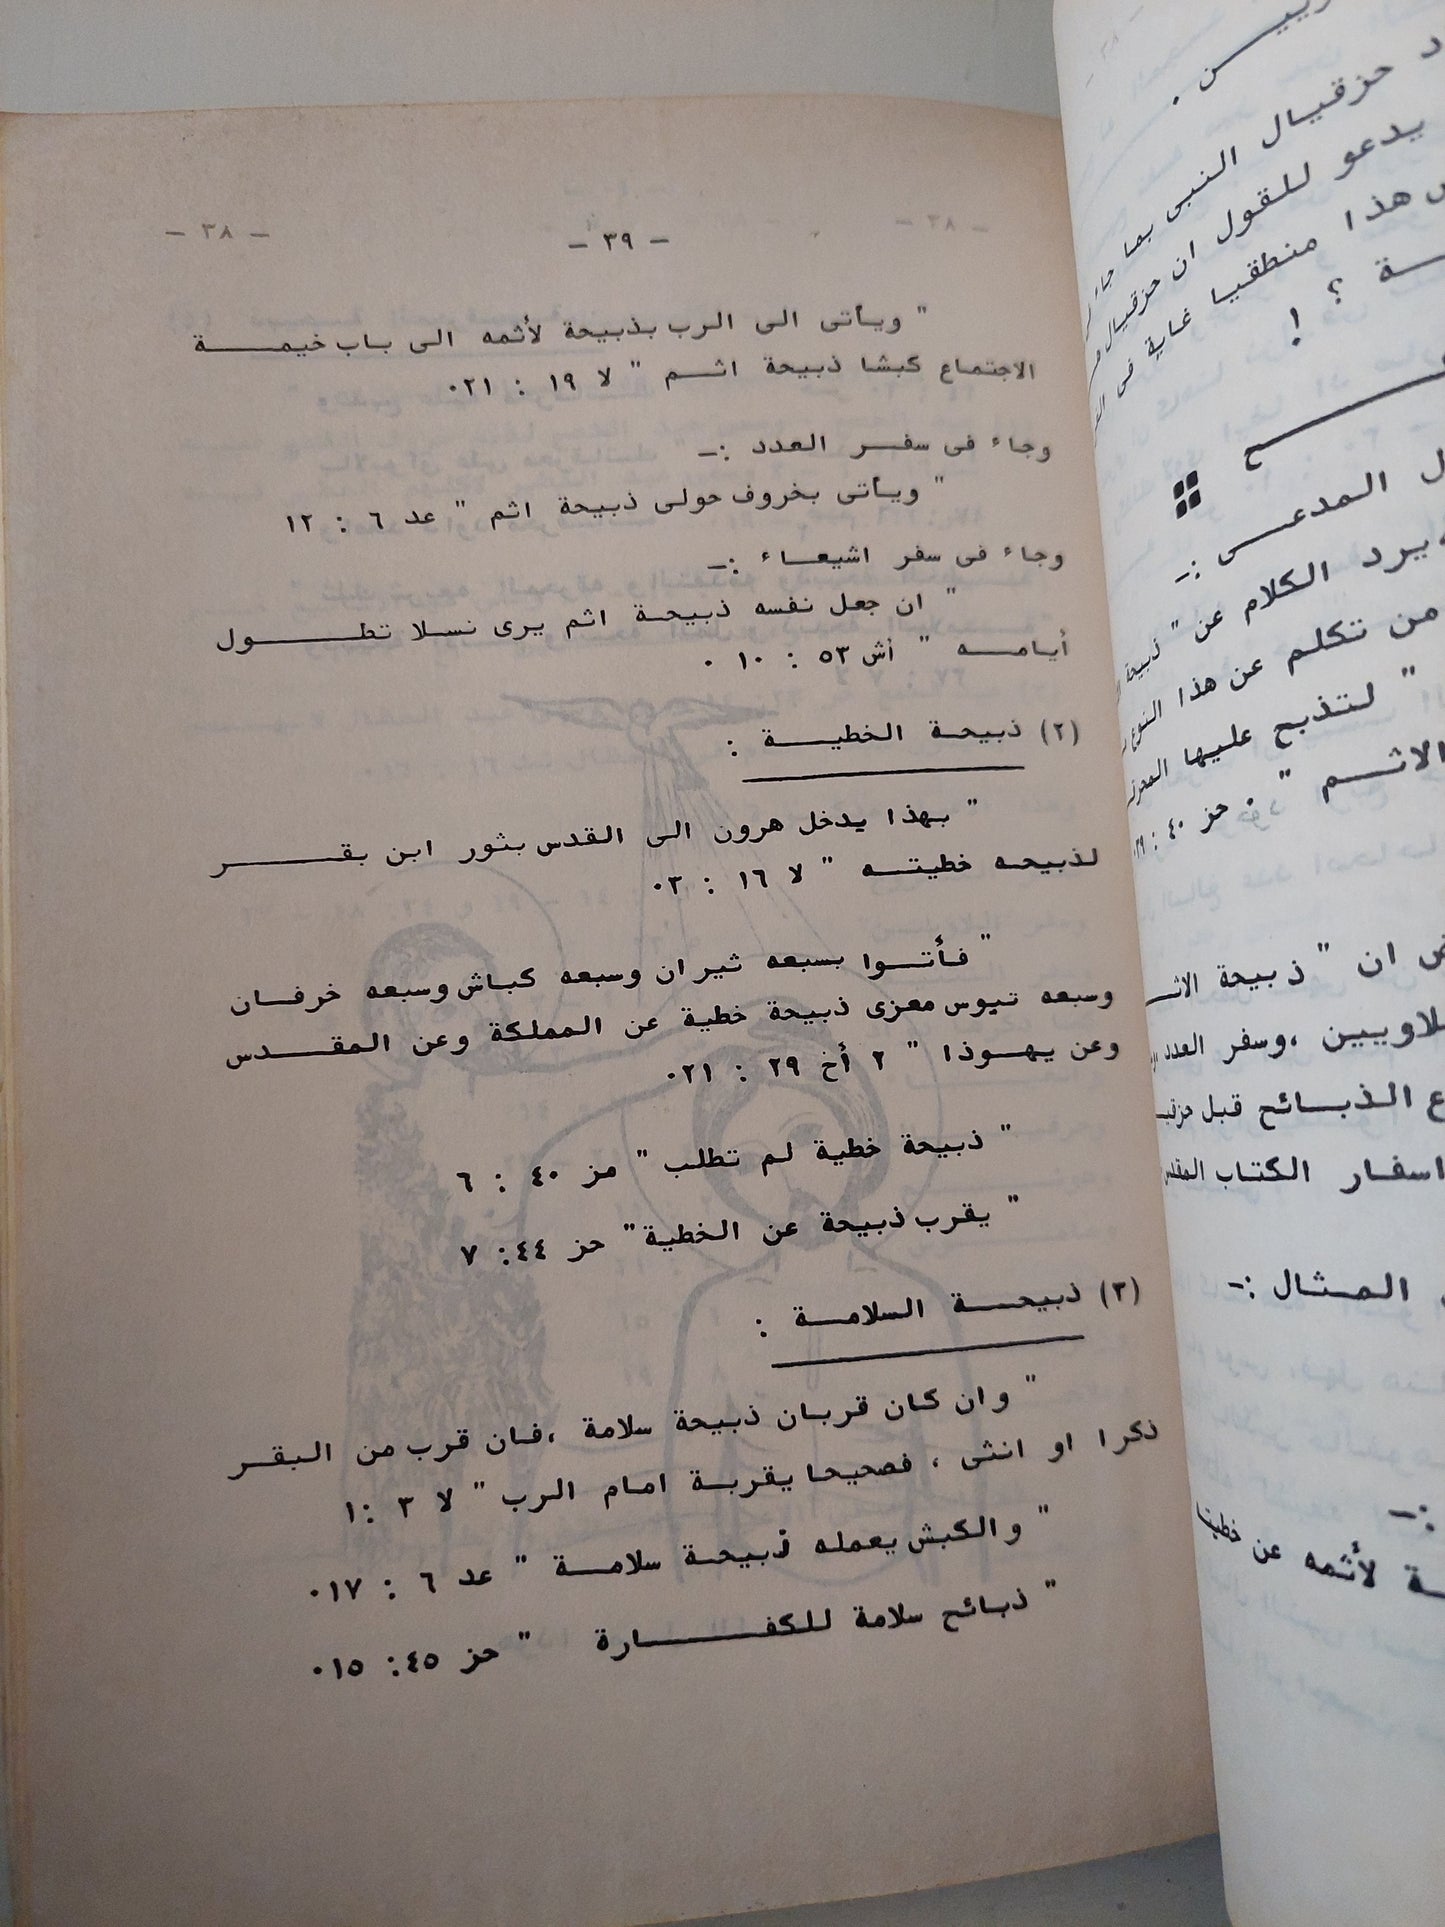 - ٣٩ -
" ويأتى الى الرب بذبيحة لأثمه الى باب خيمة
الاجتماع كبشا ذبيحة اثم " لا ١٩ : ٢١٠
وجاء فى سفر العدد :-
" ويأتى بخروف حولى ذبيحة اثم " عد ٦ : ١٢
وجاء فى سفر اشيعاء :-
" ان جعل نفسه ذبيحة اثم يرى نسلا تطول
أيامه " أش ٥٣ : ١٠ ٠
(٢) ذبيحة الخطية :
" بهذا يدخل هرون الى القدس بثور ابن بقر
لذبيحه خطيته " لا ١٦ : ٣٠
" فأتوا بسبعه ثيران وسبعه كباش وسبعه خرفان
وسبعه تيوس معزى ذبيحة خطية عن المملكة وعن المقدس
وعن يهوذا " ٢ أخ ٢٩ : ٢١٠
" ذبيحة خطية لم تطلب " مز ٤٠ : ٦
" يقرب ذبيحة عن الخطية " حز ٤٤ : ٧
(٣) ذبيحة السلامة :
" وان كان قربان ذبيحة سلامة ، فان قرب من البقر
ذكرا او انثى ، فصحيحا يقربة امام الرب " لا ٣ : ١
" والكبش يعمله ذبيحة سلامة " عد ٦ : ١٧٠
" ذبائح سلامة للكفارة " حز ٤٥ : ١٥٠
- ٣٨ -
حزقيال النبى بما جاء
يدعو للقول ان حزقيال
هذا منطقيا غاية فى
؟ !
المدعى :-
يرد الكلام عن " ذبيحة
من تكلم عن هذا النوع
" لتذبح عليها المحرقة
الاثم " ٠ حز ٤٠ : ٣٩
ان " ذبيحة
، وسفر العدد
الذبائح قبل
اسفار الكتاب المقدس
المثال :-
:-
لأثمه عن